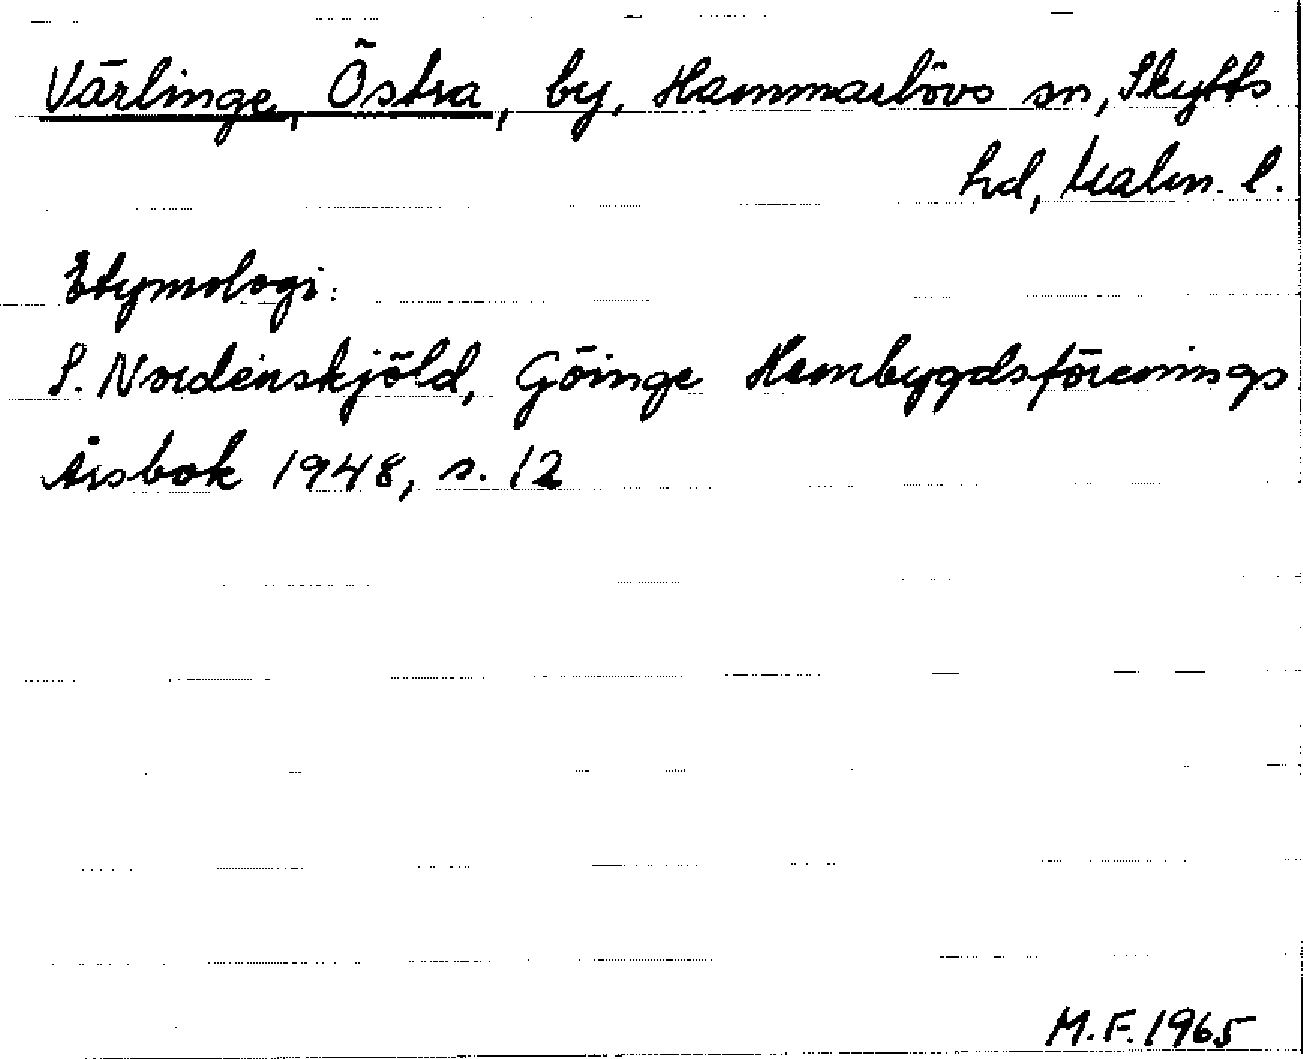 Värlinge, Östra, by, Hammarlövs sn, Skytts
hd, Malm. l.
Etymologi:
S. Nordenskjöld, Göinge Hembygdsförenings
Årsbok 1948, s. 12
M.F. 1965